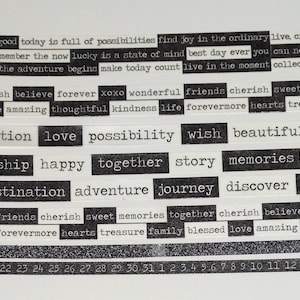 good today is full of possibilities find joy in the ordinary live,
remember the now lucky is a state of mind best day ever you can
the adventure begins make today count live in the moment collec
ish believe forever xoxo wonderful friends cherish sweet
amazing thoughtful kindness life forevermore hearts tre
tion love possibility wish beautiful
ship happy together story memories
stination adventure journey discover
friends cherish sweet memories together cherish believe
forevermore hearts treasure family blessed love amazing
22 23 24 25 26 27 28 29 30 31 1 2 3 4 5 6 7 8 9 10 11 12